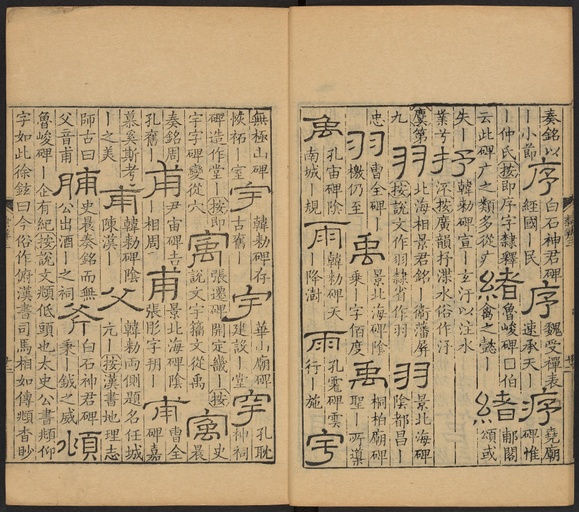 奏銘以丨小節
序
白石神君碑經國丨民
序
魏受禪表遠承天丨
序
堯廟碑惟
丨仲氏按即序字隸釋云此碑广之類多從疒
緒
魯峻碑囗伯禽之懿丨
緒
郙閣頌或
失丨業兮
抒
韓勅碑宣丨玄汙以注水深按廣韻抒渫水俗作汙
麌第九
羽
北海相景君銘丨衞藩屏按說文作羽隸省作羽
羽
景北海碑陰都昌丨
忠
羽
曹全碑丨檄仍至
禹
景北海碑陰乘丨字佰度
禹
桐柏廟碑聖丨所導
禹
孔宙碑陰南城丨規
雨
韓勅碑天丨降澍
雨
孔龢碑雲行丨施
宇
無極山碑恢祏丨室
宇
韓勅碑存古舊丨
宇
華山廟碑建設丨堂
宇
孔耽神祠
碑造作堂丨按即宇字碑變從穴
㝢
張遷碑開定畿丨按說文宇籀文從禹
㝢
史晨
奏銘周孔舊丨
甫
尹宙碑吉丨相周
甫
景北海碑陰張彤字翔丨
甫
曹全碑嘉
慕奚斯考丨之美
甫
韓勅碑陰陳漢丨
父
韓勅兩側題名任城亢丨按漢書地理志
師古曰父音甫
脯
史晨奏銘而無公出酒丨之祠
斧
白石神君碑秉丨鉞之威
頫
魯峻碑丨企有紀按說文頫低頭也太史公書頫仰
字如此徐鉉曰今俗作俯漢書司馬相如傳頫杳眇